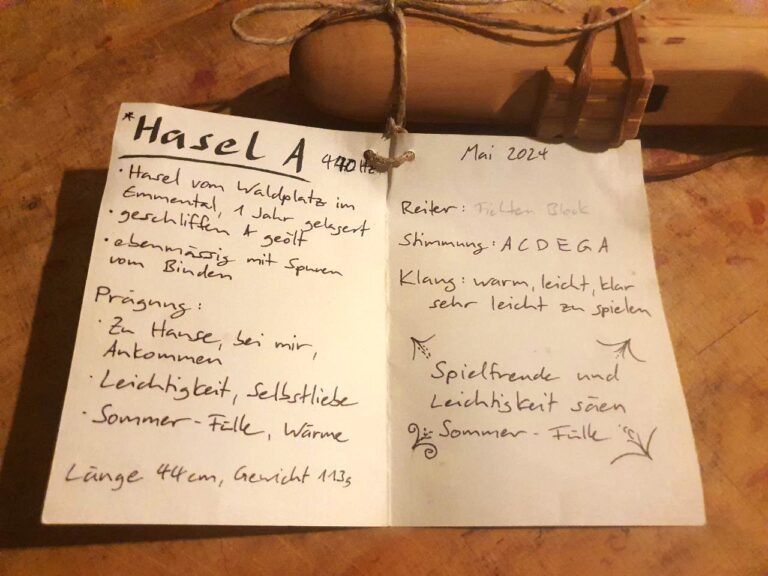 *Hasel A 440 Hz
• Hasel vom Waldplatz im
Emmental, 1 Jahr gelagert
• geschliffen & geölt
• ebenmässig mit Spuren
vom Binden
Prägung:
• Zu Hause, bei mir,
Ankommen
• Leichtigkeit, Selbstliebe
• Sommer-Fülle, Wärme
Länge 44cm, Gewicht 113g
Mai 2024
Reiter: Fichten Block
Stimmung: A C D E G A
Klang: warm, leicht, klar
sehr leicht zu spielen
Spielfreude und
Leichtigkeit säen
Sommer-Fülle